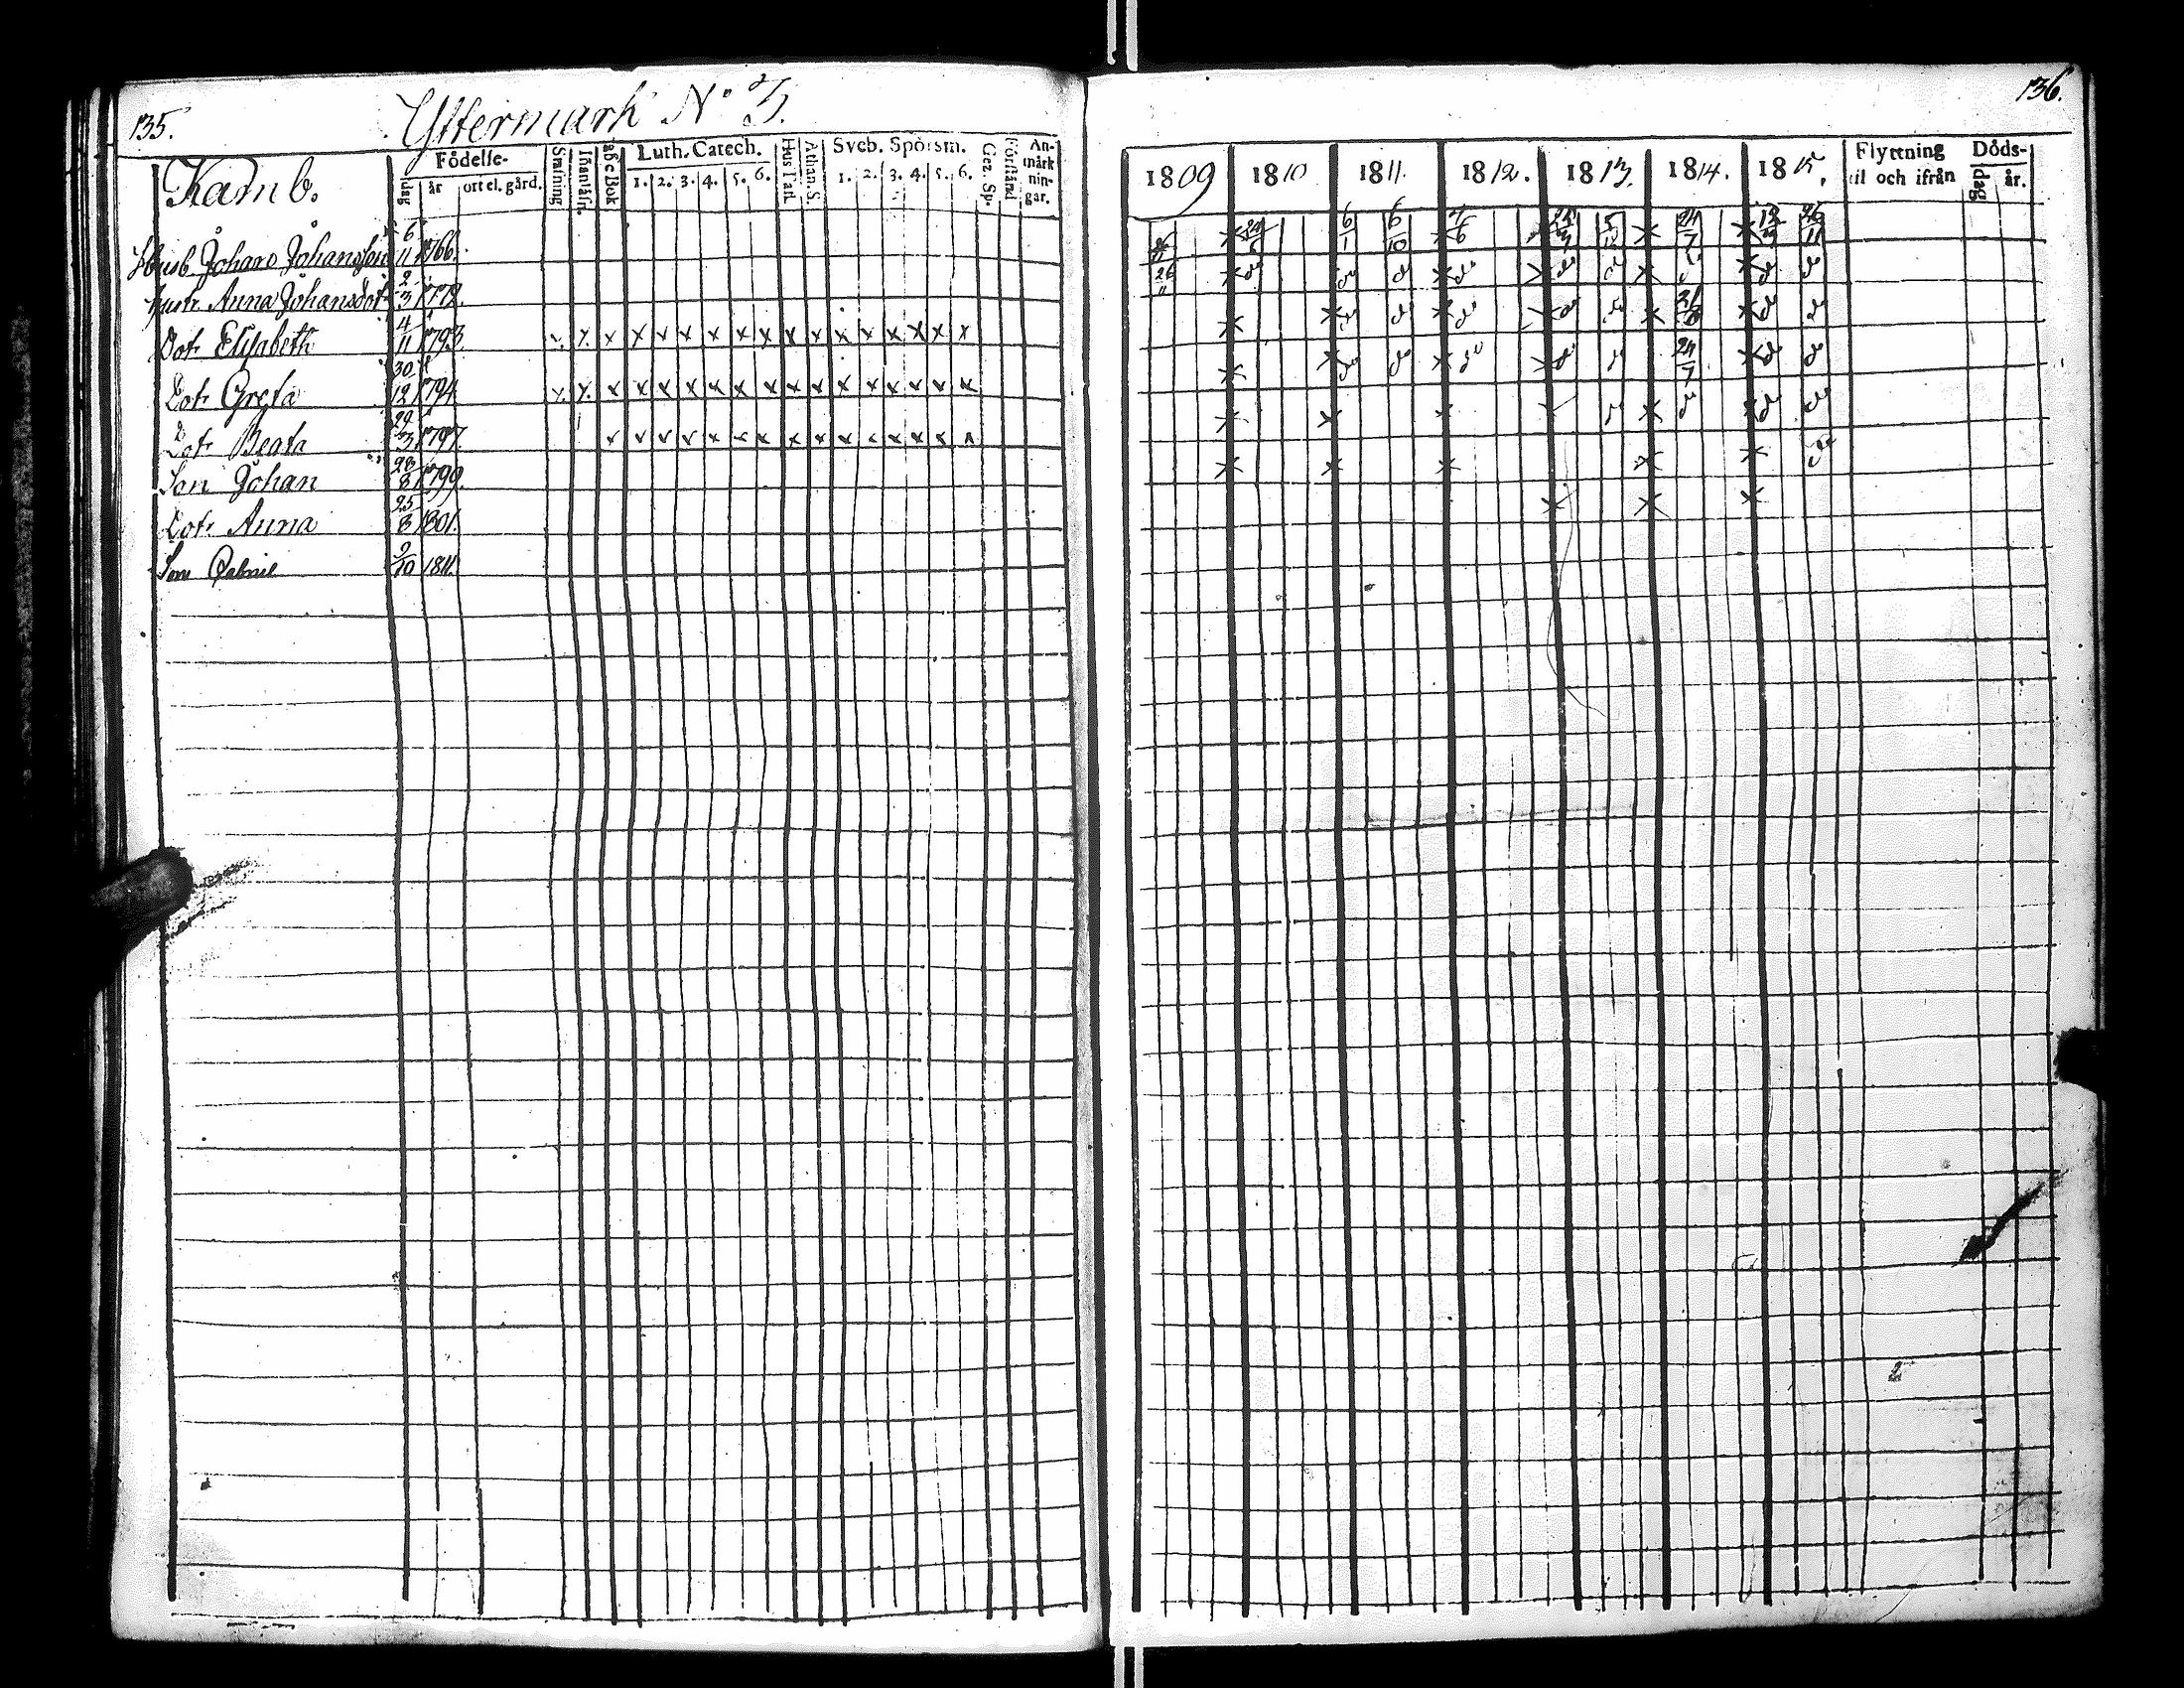 135.
Yttermark No 3.
Kamb.
Födelse-
dag
år
ort el. gård.
Stafning
Innanläsn.
abc Bok
Luth. Catech.
1. 2. 3. 4. 5. 6.
Hus Tafl.
Athan. S.
Sveb. Spörsm.
1. 2. 3. 4. 5. 6.
Gez. Sp.
Förstånd
An-
märk
nin-
gar.
Husb. Johan Johansson 6/11 1766.
Hustr. Anna Johansdotr 2/3 1772.
Dotr Elisabeth 4/11 1793. x x x x x x x x x x x x x x x x x
Dotr Greta 30/12 1794. x x x x x x x x x x x x x x x x x
Dotr Beata 29/3 1797. x x x x x x x x x x x x x x x
Son Johan 28/8 1799.
Dotr Anna 25/8 1801.
Son Gabriel 9/10 1811.
136.
1809 1810 1811. 1812. 1813. 1814. 1815.
Flyttning
til och ifrån
Döds-
dag
år.
x 6/1 6/10 x x 24/7 x 12/3 26/11
26/11 x do do do x do x do do x x do do
x x do do x do do do x x do do
x x do do x do x do 24/7 x do do
x x x do x do do do
x x x x x do
x x x